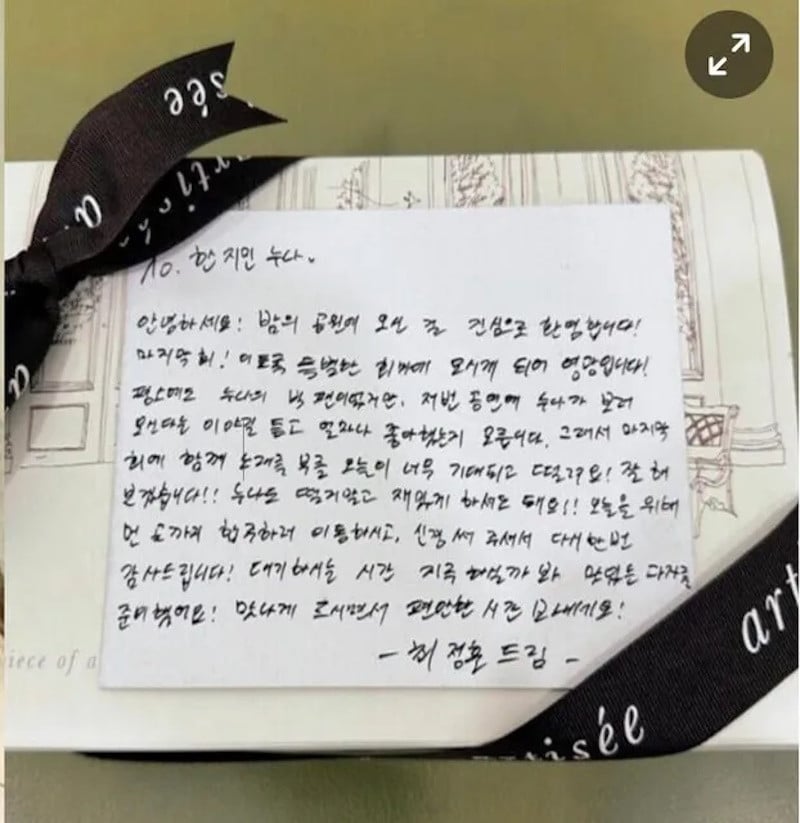 isée
artisée
a
To. 한지민 누나.
안녕하세요! 밤의 공원에 오신 걸 진심으로 환영합니다!
마지막 회! 이토록 특별한 회차에 모시게 되어 영광입니다!
평소에도 누나의 빅 팬이었지만, 저번 공연에 누나가 보러
오신다는 이야길 듣고 얼마나 좋아했는지 모릅니다. 그래서 마지막
회에 함께 노래를 부를 오늘이 너무 기대되고 떨려요! 잘 해
보겠습니다!! 누나도 떨지말고 재밌게 하셔도 돼요!! 오늘을 위해
먼 곳까지 합주하러 이동하시고, 신경 써 주셔서 다시한번
감사드립니다! 대기하시는 시간 지루하실까 봐 맛있는 다과를
준비했어요! 맛나게 드시면서 편안한 시간 보내세요!
- 최정훈 드림 -
piece of a
art
artisée